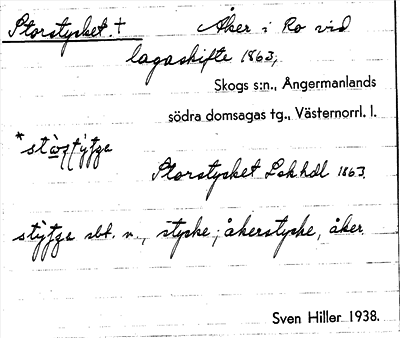 Storstycket.† Åker i Ro vid
lagaskifte 1863,
Skogs s:n., Ångermanlands
södra domsagas tg., Västernorrl. l.
Storstycket Lskhdl 1863.
sbt. n., stycke; åkerstycke, åker.
Sven Hiller 1938.